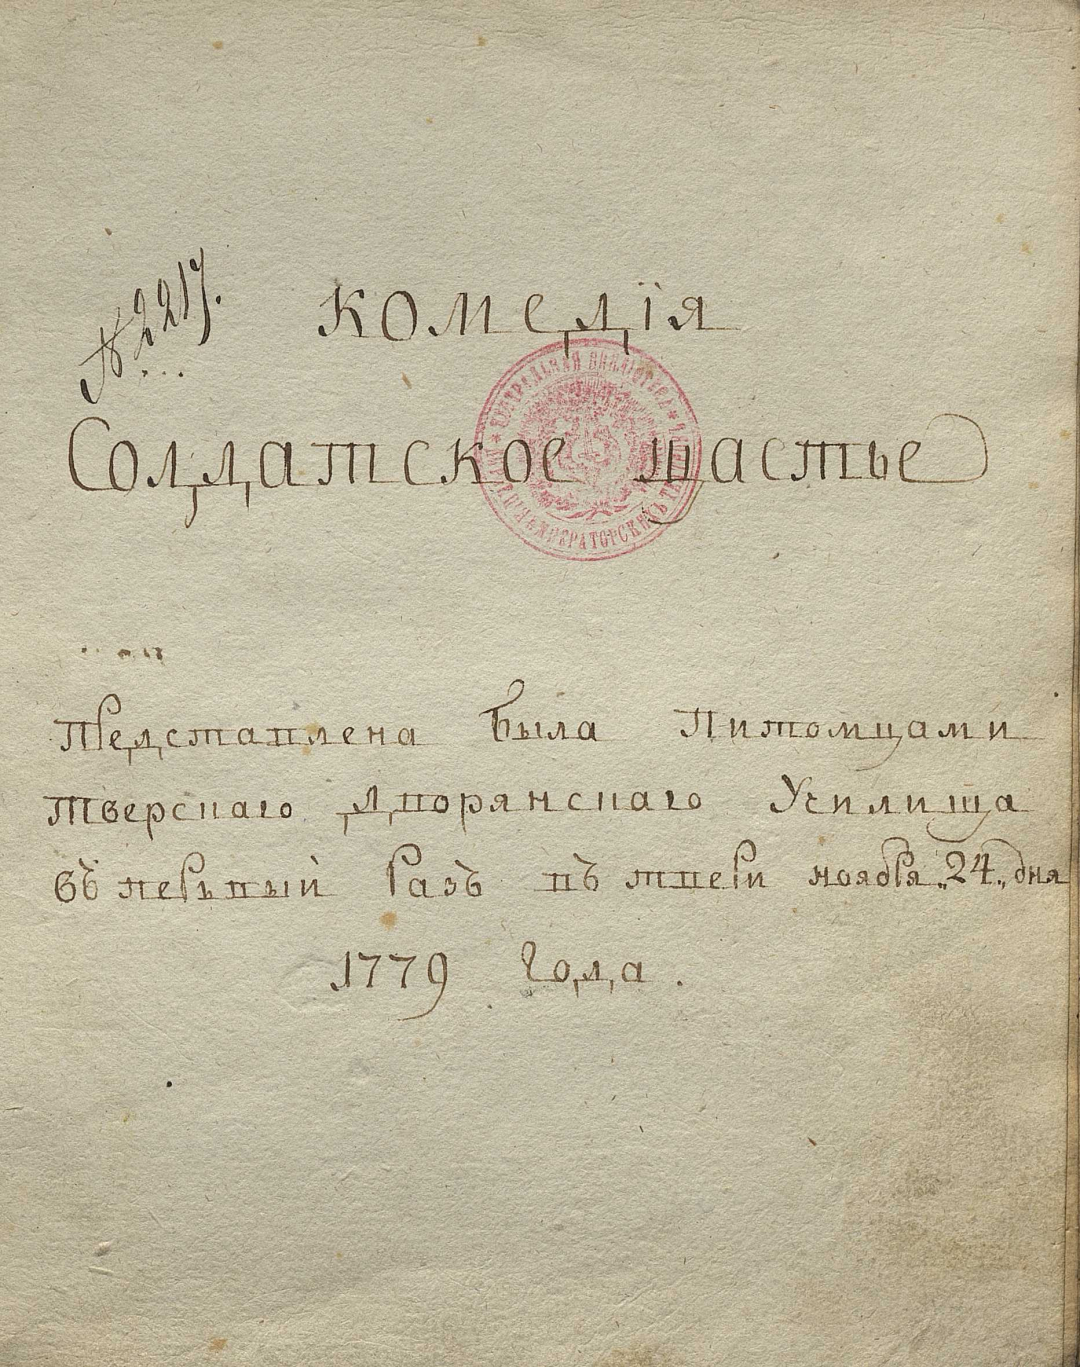 № 2217.
комедїя
Солдатское щастье
Представлена была Питомцами
тверскаго дворянскаго Училища
въ первый разъ въ твери ноября „24„ дня
1779 года.
ЦЕНТРАЛЬНАЯ БИБЛІОТЕКА
ИМПЕРАТОРСКИХЪ